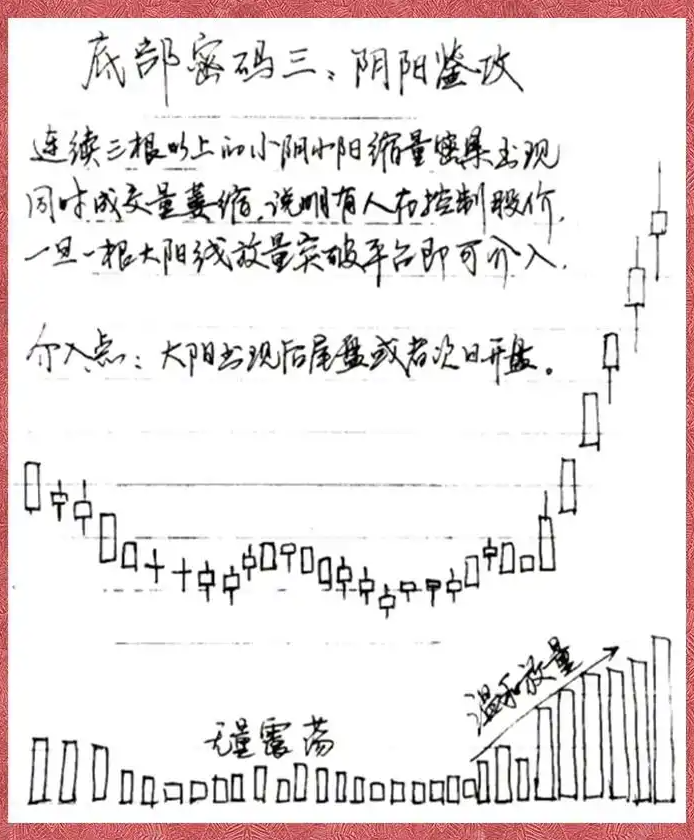 底部密码三：阴阳鉴攻
连续三根以上的小阴小阳缩量密集出现
同时成交量萎缩，说明有人在控制股价，
一旦一根大阳线放量突破平台即可介入.
介入点：大阳出现后尾盘或者次日开盘。
温和放量
无量震荡